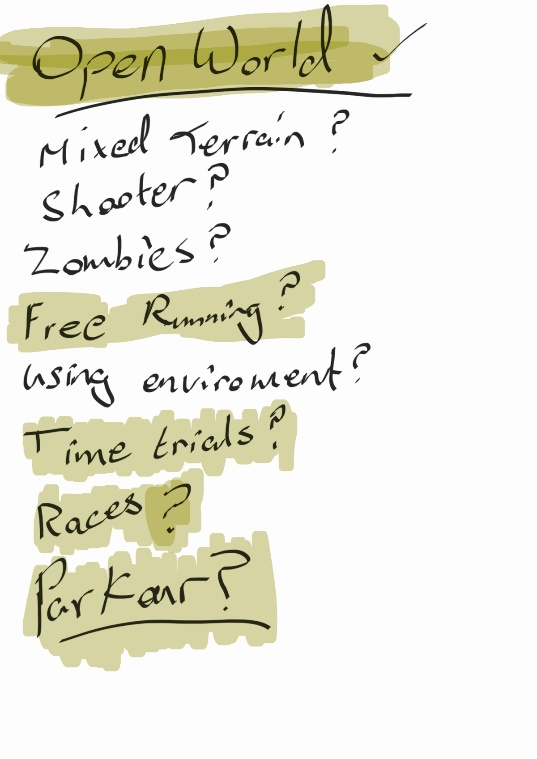 Open World ✓
Mixed Terrain?
Shooter?
Zombies?
Free Running?
Using enviroment?
Time trials?
Races?
Parkour?